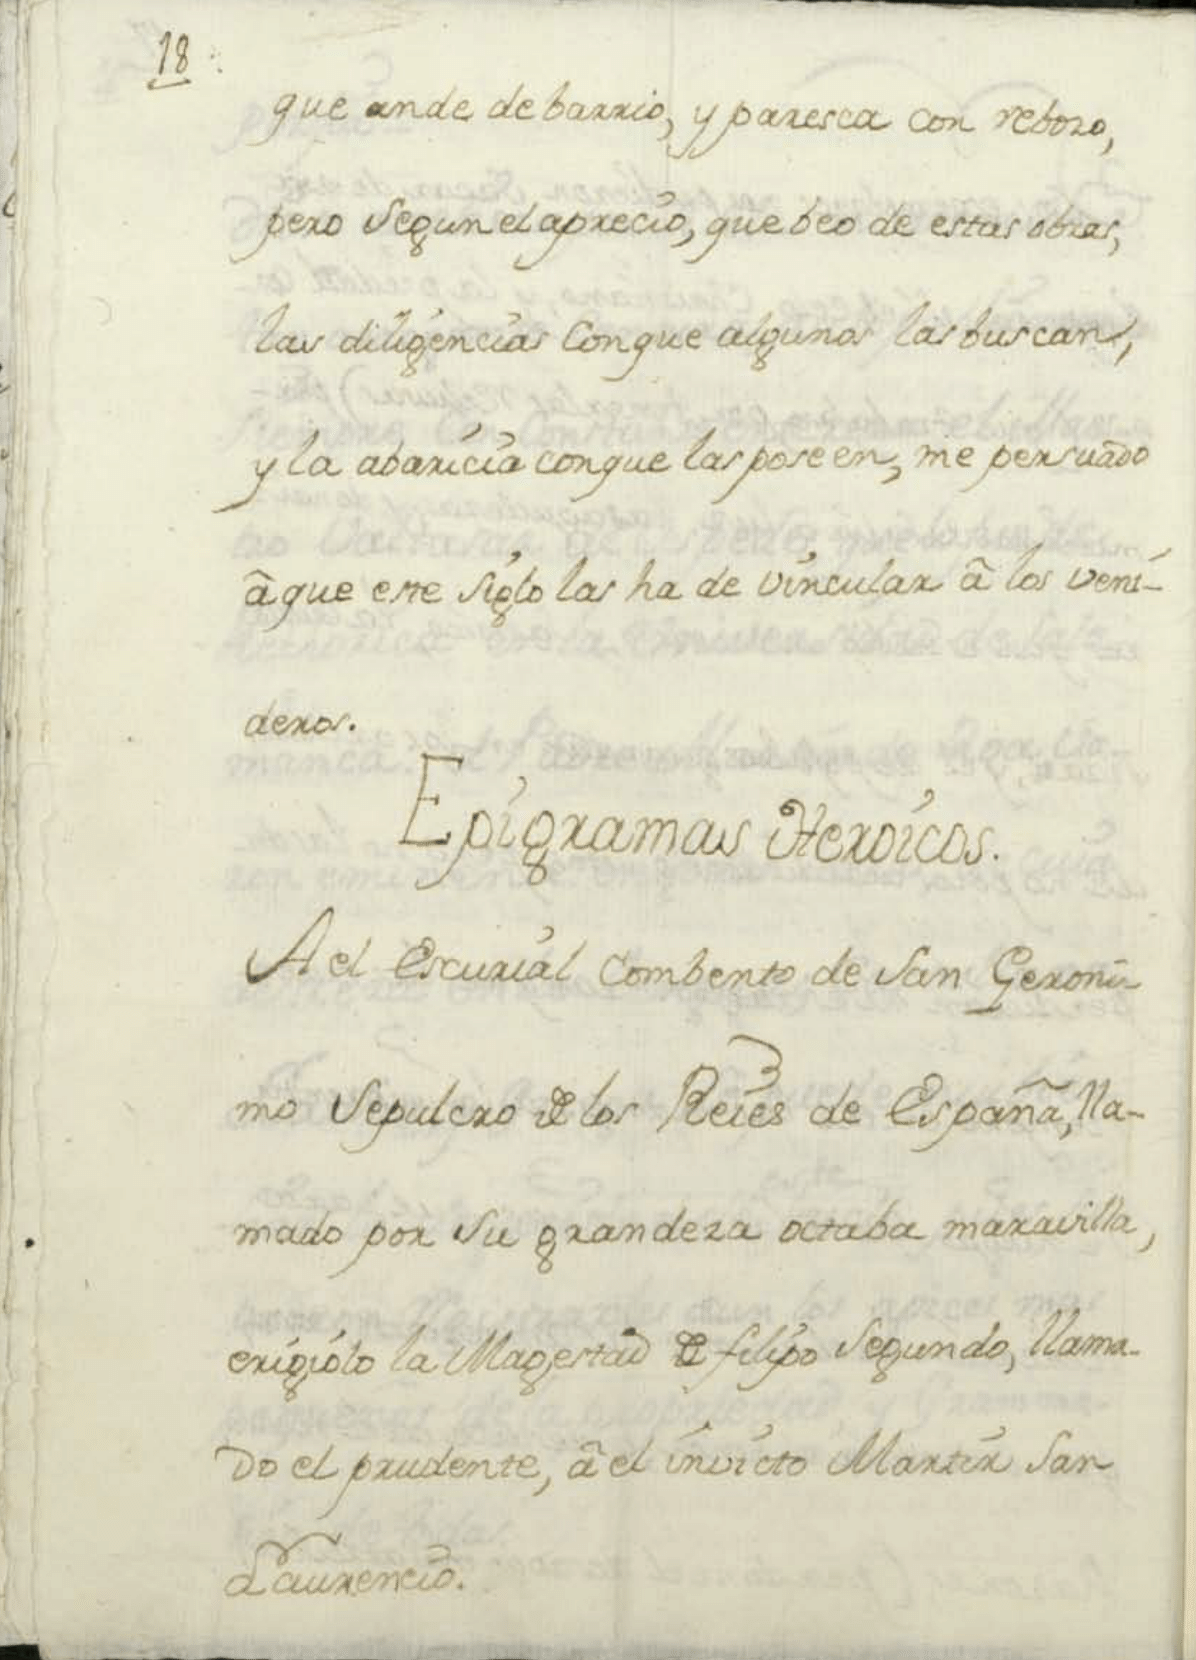 18
que ande de barrio, y paresca con rebozo,
pero segun el aprecio, que beo de estas obras,
las diligencias con que algunos las buscan,
y la abaricia con que las poseen, me persuado
â que este siglo las ha de vincular â los veni-
deros.
Epigramas Heroicos.
A el Escurial Combento de San Geroni-
mo Sepulcro de los Reies de España, lla-
mado por su grandeza octaba maravilla,
erigiólo la Magestad de filipo Segundo, llama-
do el prudente, â el invicto Martir San
Laurencio.